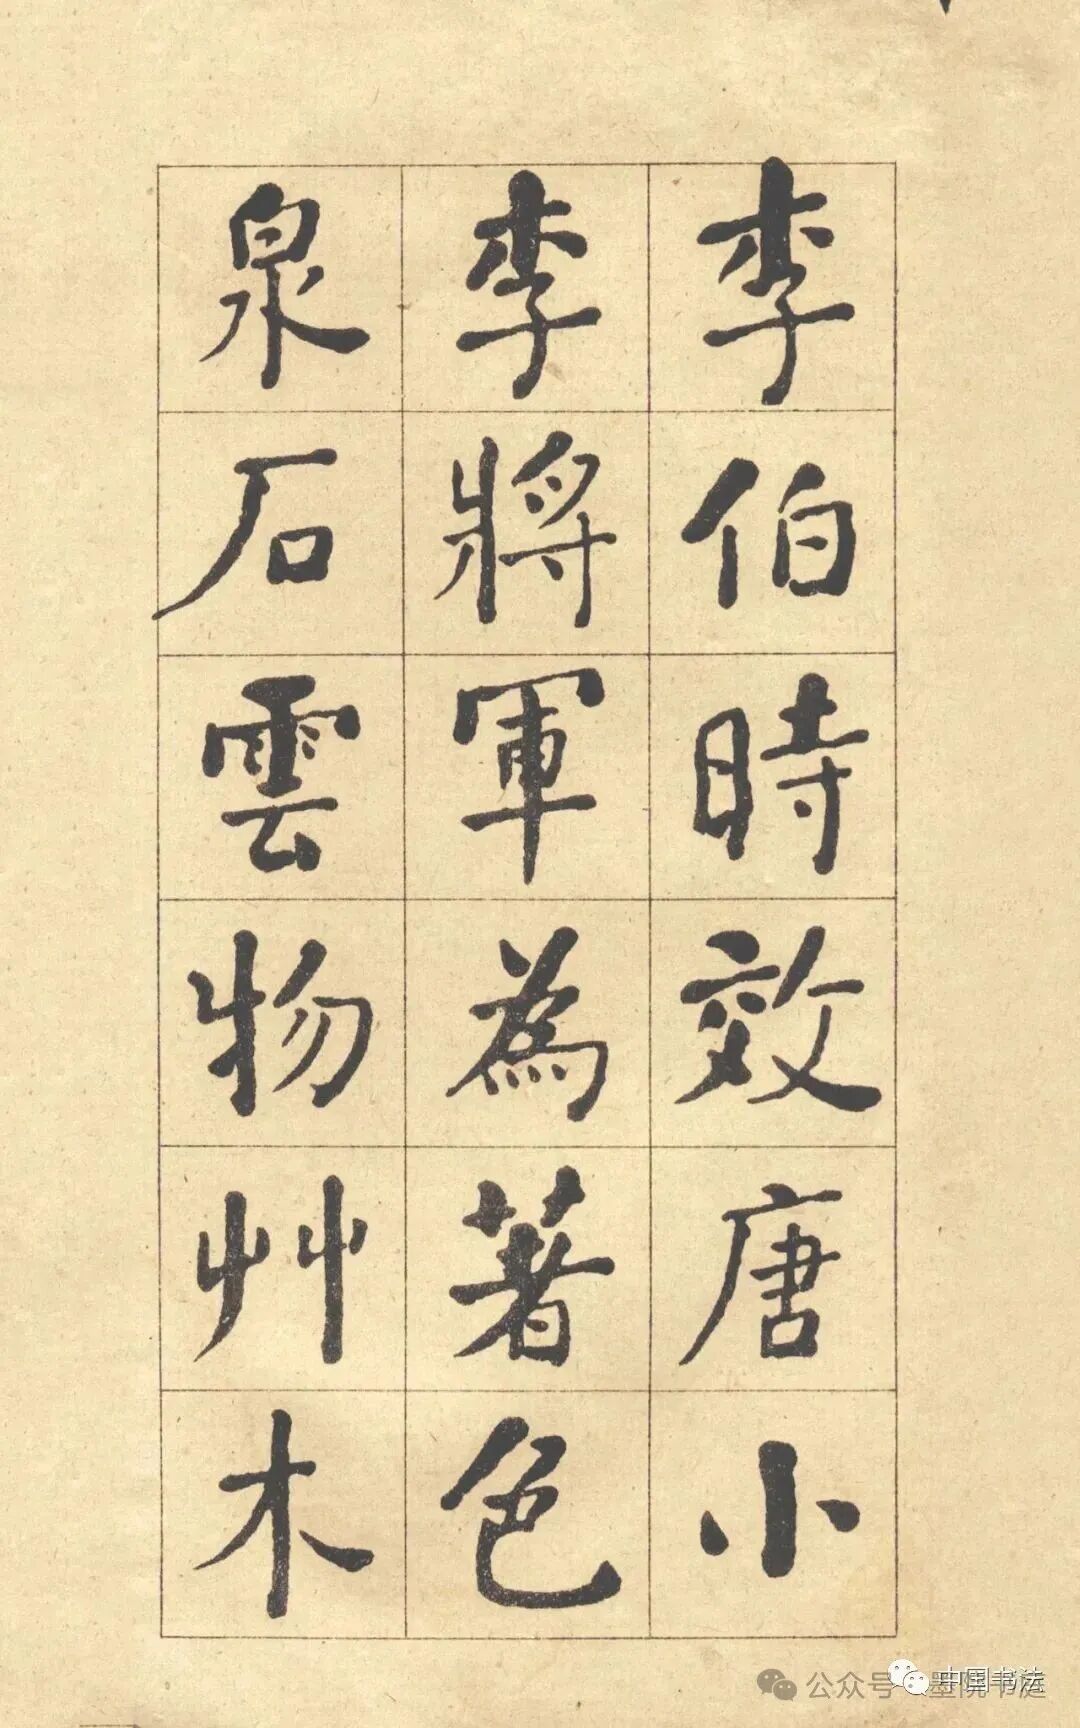 李伯時效唐小
李將軍為著色
泉石雲物艸木
公众号
中国书法